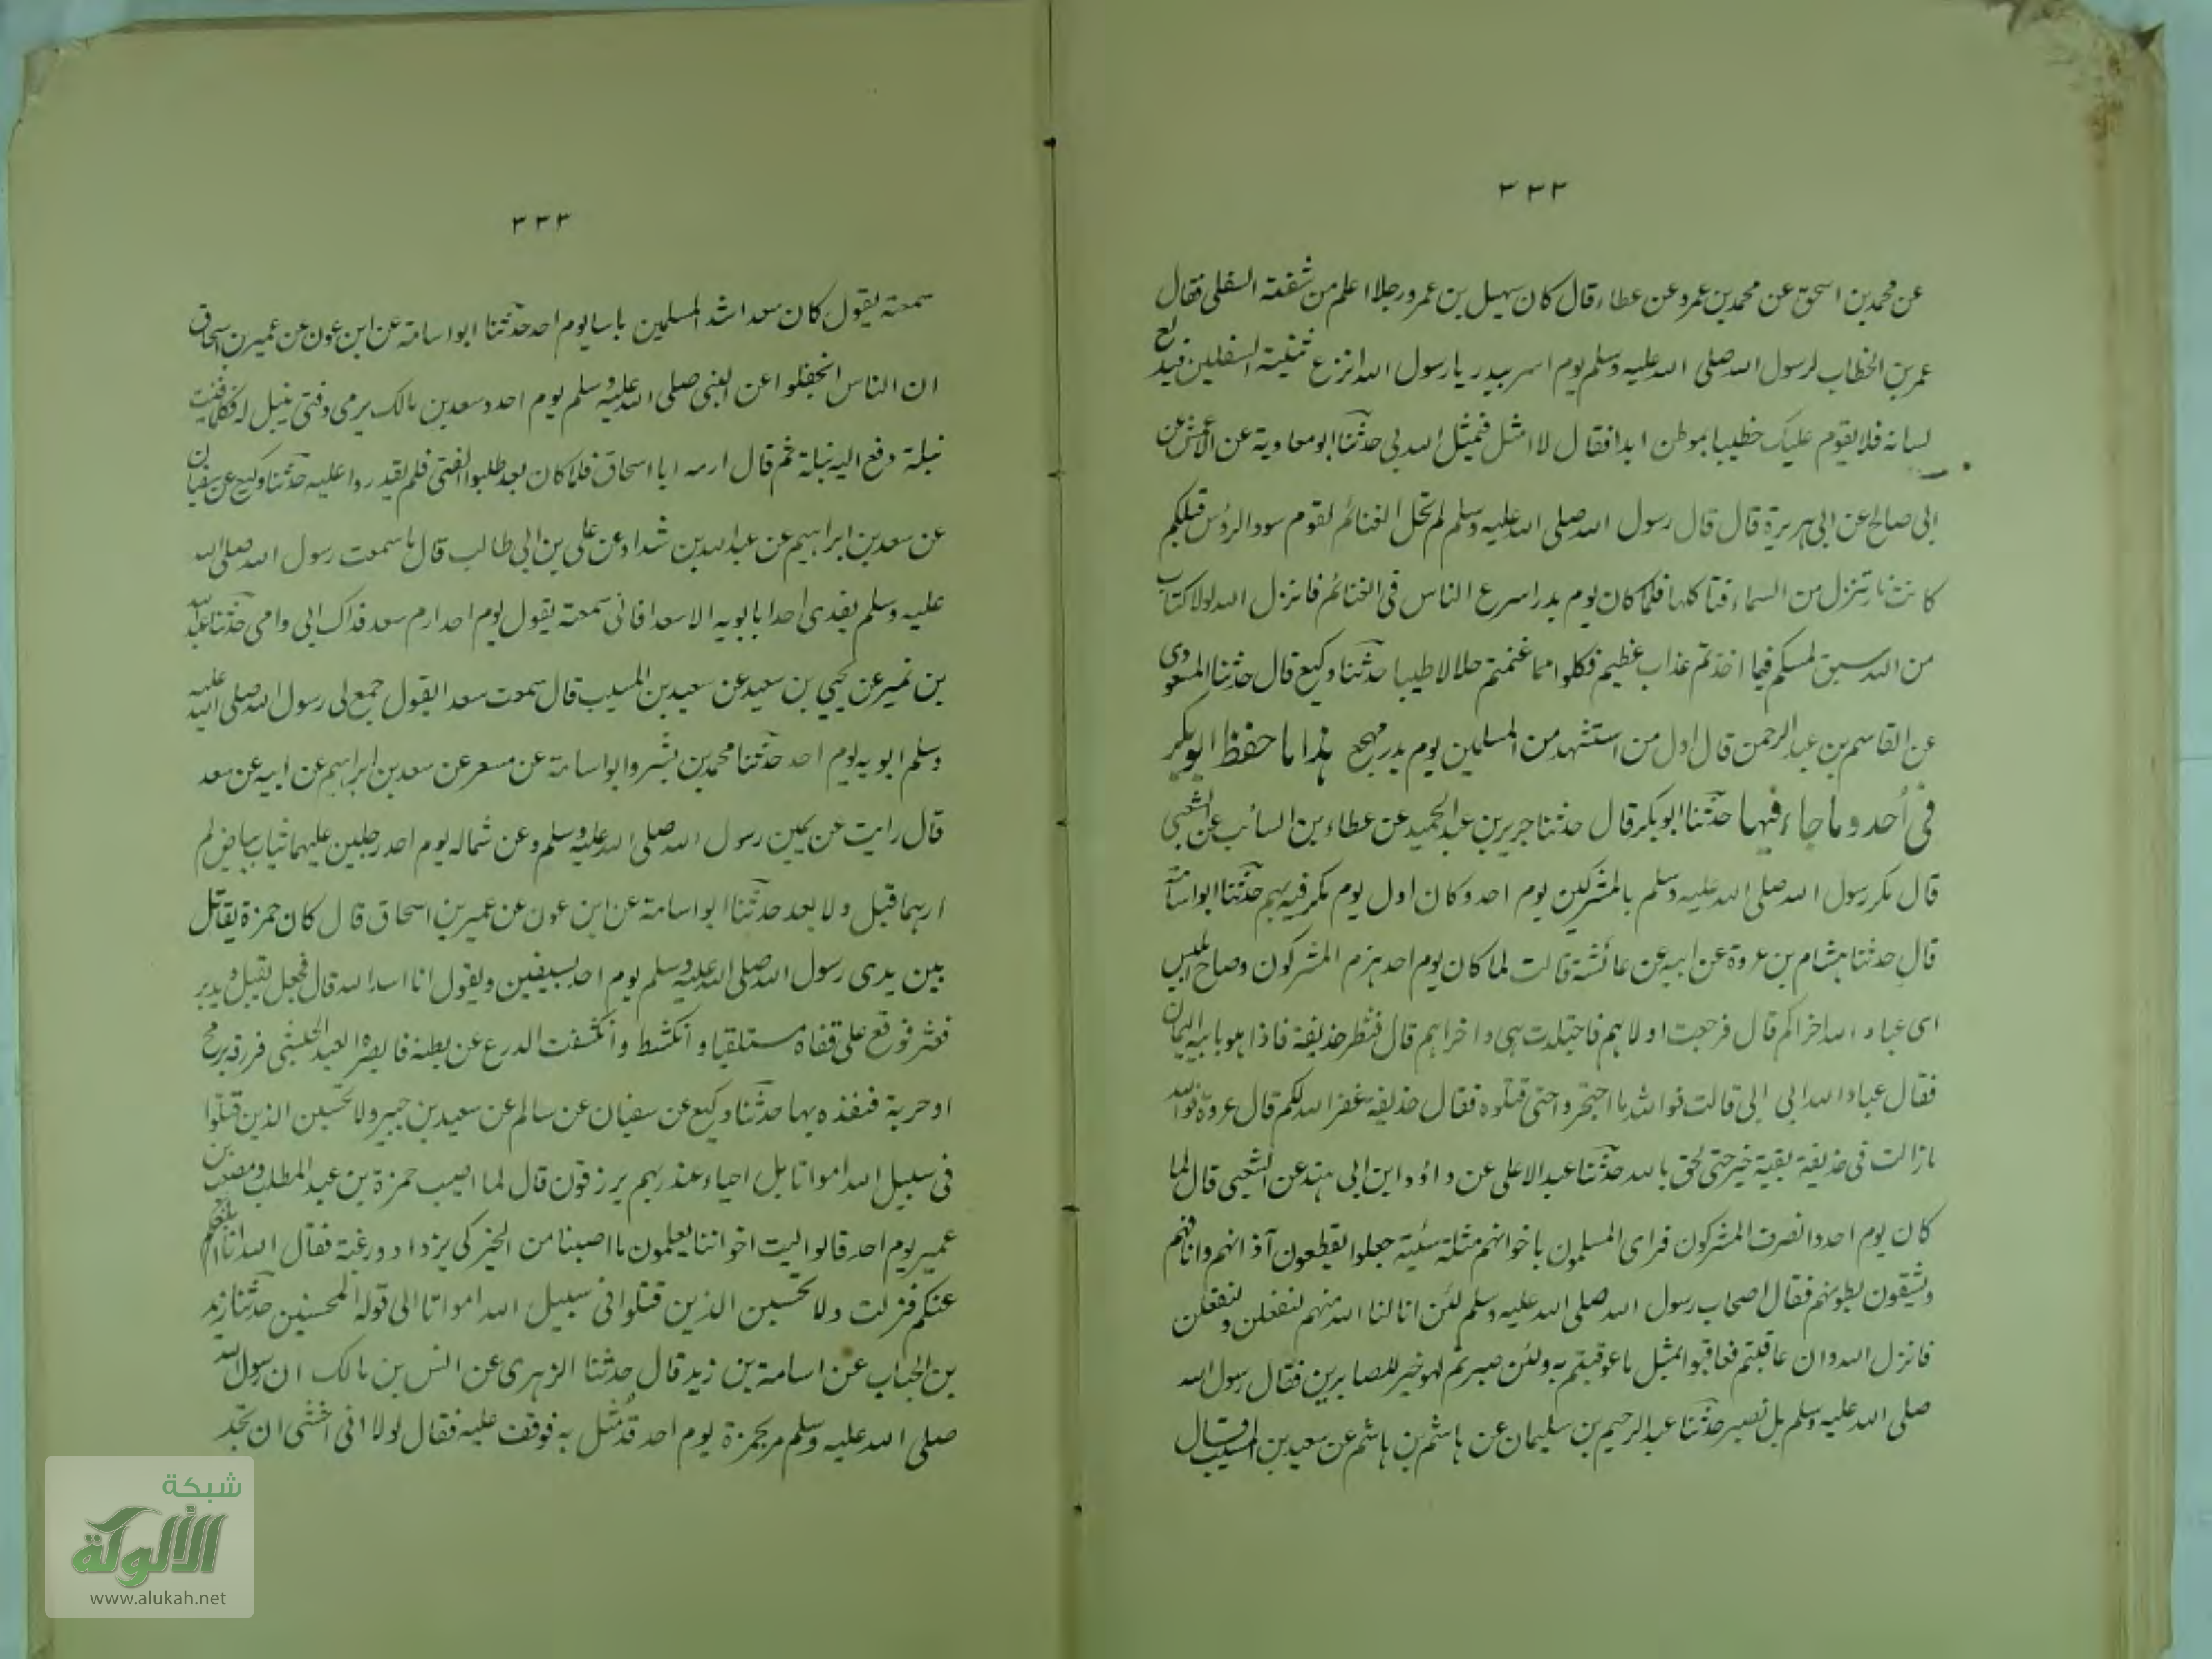 ٣٣٢
عن محمد بن اسحق عن محمد بن عمرو عن عطاء قال كان سهيل بن عمرو رجلا اعلم من شفته السفلى فقال
عمر بن الخطاب لرسول الله صلى الله عليه وسلم يوم اسر ببدر يا رسول الله انزع ثنيته السفلين فيدلع
لسانه فلا يقوم عليك خطيبا بموطن ابدا فقال لا امثل فيمثل الله بي حدثنا ابو معاوية عن الاعمش عن
ابي صالح عن ابي هريرة قال قال رسول الله صلى الله عليه وسلم لم تحل الغنائم لقوم سود الرؤس قبلكم
كانت نار تنزل من السماء فتاكلها فلما كان يوم بدر اسرع الناس في الغنائم فانزل الله لولا كتاب
من الله سبق لمسكم فيما اخذتم عذاب عظيم فكلوا مما غنمتم حلالا طيبا حدثنا وكيع قال حدثنا المسعودي
عن القاسم بن عبد الرحمن قال اول من استشهد من المسلمين يوم بدر مهجع هذا ما حفظ ابو بكر
في أحد وما جاء فيها حدثنا ابو بكر قال حدثنا جرير بن عبد الحميد عن عطاء بن السائب عن الشعبي
قال مكر رسول الله صلى الله عليه وسلم بالمشركين يوم احد وكان اول يوم مكر فيه بهم حدثنا ابو اسامة
قال حدثنا هشام بن عروة عن ابيه عن عائشة قالت لما كان يوم احد هزم المشركون وصاح ابليس
اى عباد الله اخراكم قال فرجعت اولاهم فاجتلدت هي واخراهم قال فنظر حذيفة فاذا هو بابيه اليمان
فقال عباد الله ابي ابي قالت فوالله ما احتجزوا حتى قتلوه فقال حذيفة غفر الله لكم قال عروة فوالله
ما زالت في حذيفة بقية خير حتى لحق بالله حدثنا عبد الاعلى عن داؤد ابن ابي هند عن الشعبي قال لما
كان يوم احد وانصرف المشركون فراى المسلمون باخوانهم مثلة سئية جعلوا يقطعون آذانهم وانافهم
ويشقون بطونهم فقال اصحاب رسول الله صلى الله عليه وسلم لئن انالنا الله منهم لنفعلن ولنفعلن
فانزل الله وان عاقبتم فعاقبوا بمثل ما عوقبتم به ولئن صبرتم لهو خير للصابرين فقال رسول الله
صلى الله عليه وسلم بل نصبر حدثنا عبد الرحيم بن سليمان عن هاشم بن هاشم عن سعيد بن المسيب قال
٣٣٣
سمعته يقول كان سعد اشد المسلمين باسا يوم احد حدثنا ابو اسامة عن ابن عون عن عمير بن اسحاق
ان الناس انجفلوا عن النبي صلى الله عليه وسلم يوم احد وسعد بن مالك يرمى وفتى ينبل له فكلما فنيت
نبلة دفع اليه نبلة ثم قال ارمه ابا اسحاق فلما كان بعد طلبوا الفتى فلم يقدروا عليه حدثنا وكيع عن سفيان
عن سعد بن ابراهيم عن عبد الله بن شداد عن على بن ابي طالب قال ما سمعت رسول الله صلى الله
عليه وسلم يفدى احدا بابويه الا سعدا فانى سمعته يقول يوم احد ارم سعد فداك ابي وامى حدثنا عبد الله
بن نمير عن يحيى بن سعيد عن سعيد بن المسيب قال سمعت سعدا يقول جمع لى رسول الله صلى الله عليه
وسلم ابويه يوم احد حدثنا محمد بن بشر وابو اسامة عن مسعر عن سعد بن ابراهيم عن ابيه عن سعد
قال رايت عن يمين رسول الله صلى الله عليه وسلم وعن شماله يوم احد رجلين عليهما ثياب بياض لم
ارهما قبل ولا بعد حدثنا ابو اسامة عن ابن عون عن عمير بن اسحاق قال كان حمزة يقاتل
بين يدى رسول الله صلى الله عليه وسلم يوم احد بسيفين ويقول انا اسد الله قال فجعل يقبل ويدبر
فعثر فوقع على قفاه مستلقيا وانكشط وانكشفت الدرع عن بطنه فابصره العبد الحبشى فزرقه برمح
او حربة فنفذه بها حدثنا وكيع عن سفيان عن سالم عن سعيد بن جبير ولا تحسبن الذين قتلوا
في سبيل الله امواتا بل احياء عند ربهم يرزقون قال لما اصيب حمزة بن عبد المطلب ومصعب بن
عمير يوم احد قالوا ليت اخواننا يعلمون ما اصبنا من الخير كى يزدادوا رغبة فقال الله انا ابلغ
عنكم فنزلت ولا تحسبن الذين قتلوا في سبيل الله امواتا الى قوله المحسنين حدثنا زيد
بن الحباب عن اسامة بن زيد قال حدثنا الزهرى عن انس بن مالك ان رسول الله
صلى الله عليه وسلم مر بحمزة يوم احد قد مثل به فوقف عليه فقال لولا انى اخشى ان تجد
شبكة
الألوكة
www.alukah.net